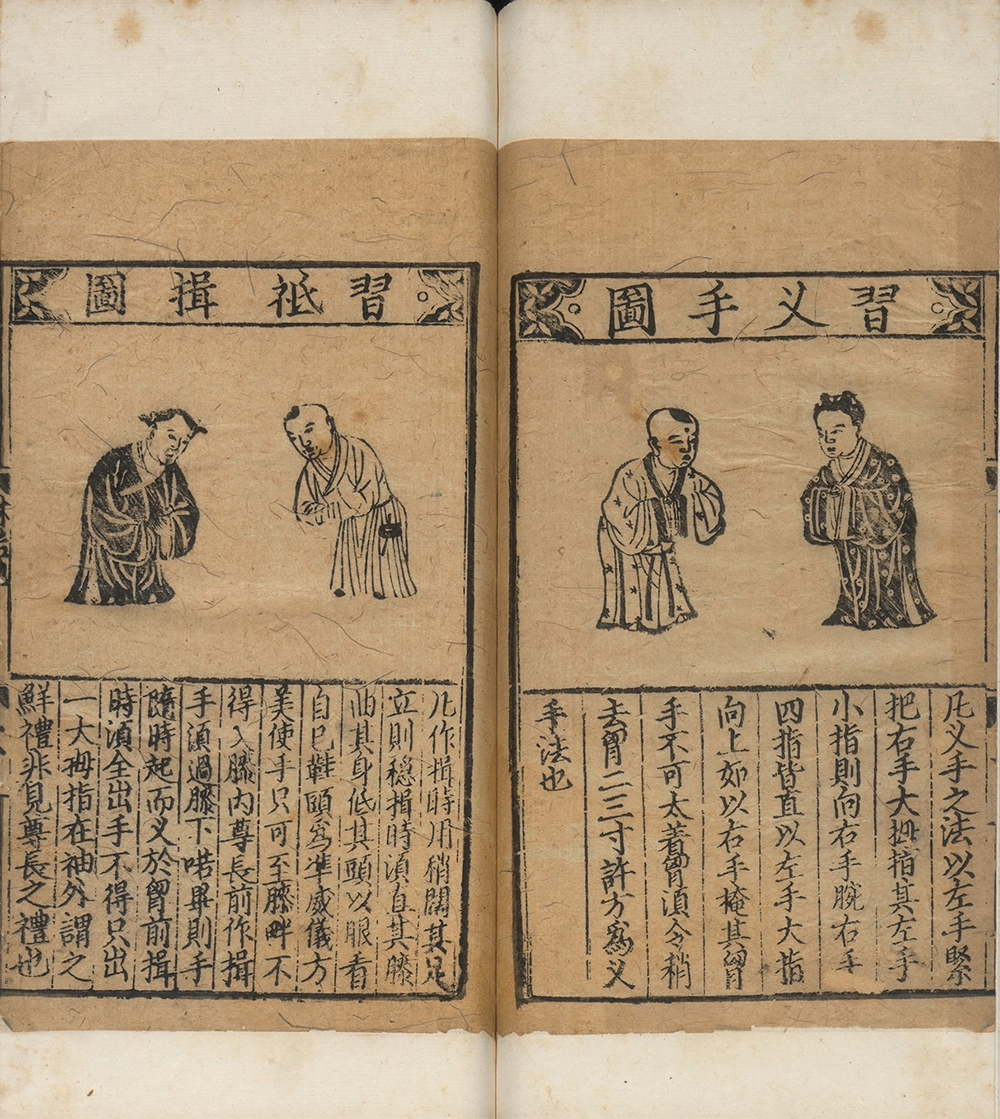 習义手圖
凡义手之法以左手緊
把右手大拇指其左手
小指則向右手腕右手
四指皆直以左手大指
向上如以右手掩其胷
手不可太着胷湏令稍
去胷二三寸許方爲义
手法也
習祗揖圖
凡作揖時用稍闊其足
立則穩揖時湏直其膝
曲其身低其頭以眼看
自己鞋頭爲準威儀方
美使手只可至膝畔不
得入膝内尊長前作揖
手湏過膝下喏畢則手
隨時起而义於胷前揖
時湏全出手不得只出
一大拇指在袖外謂之
鮮禮非見尊長之禮也